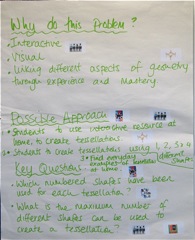 Why do this Problem?
• Interactive
• Visual
• Linking different aspects of geometry
through experience and Mastery.
Possible Approach
• Students to use interactive resource at
home to create tessellations
2 Students to create tessellations using 1, 2, 3 & 4
different shapes
3 Find everyday
examples of tessellation
at home.
Key Questions
• Which numbered shapes have been
used for each tessellation?
• What is the maximum number of
different shapes can be used to
create a tessellation?